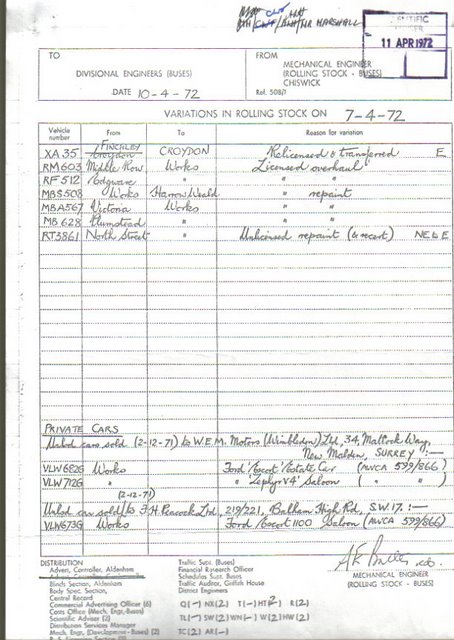 MR MARSHALL
SCIENTIFIC
11 APR 1972
TO
DIVISIONAL ENGINEERS (BUSES)
DATE 10-4-72
FROM
MECHANICAL ENGINEER
(ROLLING STOCK - BUSES)
CHISWICK
Ref. 508/1
VARIATIONS IN ROLLING STOCK ON 7-4-72
Vehicle number From To Reason for variation
XA 35 FINCHLEY Croydon CROYDON Relicensed & transferred E
RM 603 Middle Row Works Licensed overhaul
RF 512 Edgware " " "
MBS 508 Works Harrow Weald " repaint
MBA 567 Victoria Works " "
MB 628 Plumstead " " "
RT3861 North Street " Unlicensed repaint (& recert) NE to E
PRIVATE CARS
Unlcd cars sold (2-12-71) to W.E.M. Motors (Wimbledon) Ltd, 34, Matlock Way,
New Malden, SURREY :—
VLW 682G Works Ford 'Escort' Estate Car (MVCA 599/866)
VLW 712G " " 'Zephyr V4' Saloon ( " " )
(2-12-71)
Unlcd car sold to F.H. Peacock Ltd, 219/221, Balham High Rd, S.W.17. :—
VLW 673G Works Ford 'Escort 1100 Saloon (MVCA 599/866)
DISTRIBUTION
Advert. Controller, Aldenham
Blinds Section, Aldenham
Body Spec. Section,
Central Record
Commercial Advertising Officer (6)
Costs Office (Mech. Engr, Buses)
Scientific Adviser (2)
Distribution Services Manager
Mech. Engr, (Development - Buses) (2)
Traffic Supt. (Buses)
Financial Research Officer
Schedules Supt. Buses
Traffic Auditor, Griffith House
District Engineers
Q(-) NX(2) T(-) HT(2) R(2)
TL(-) SW(2) WN(-) W(2) HW(2)
TC(2) AR(-)
MECHANICAL ENGINEER
(ROLLING STOCK - BUSES)